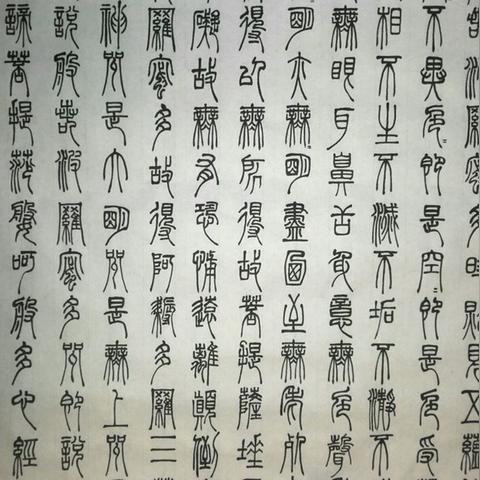 波羅蜜多時照見五蘊
不異色〻即是空〻即是色受
相不生不滅不垢不淨不
無眼耳鼻舌身意無色聲
明亦無〻明盡迺至無老死
得以無所得故菩提薩埵
礙故無有恐怖遠離顛倒
羅蜜多故得阿耨多羅三
神咒是大明咒是無上咒
說般若波羅蜜多咒即說
諦菩提莎婆呵般多心經